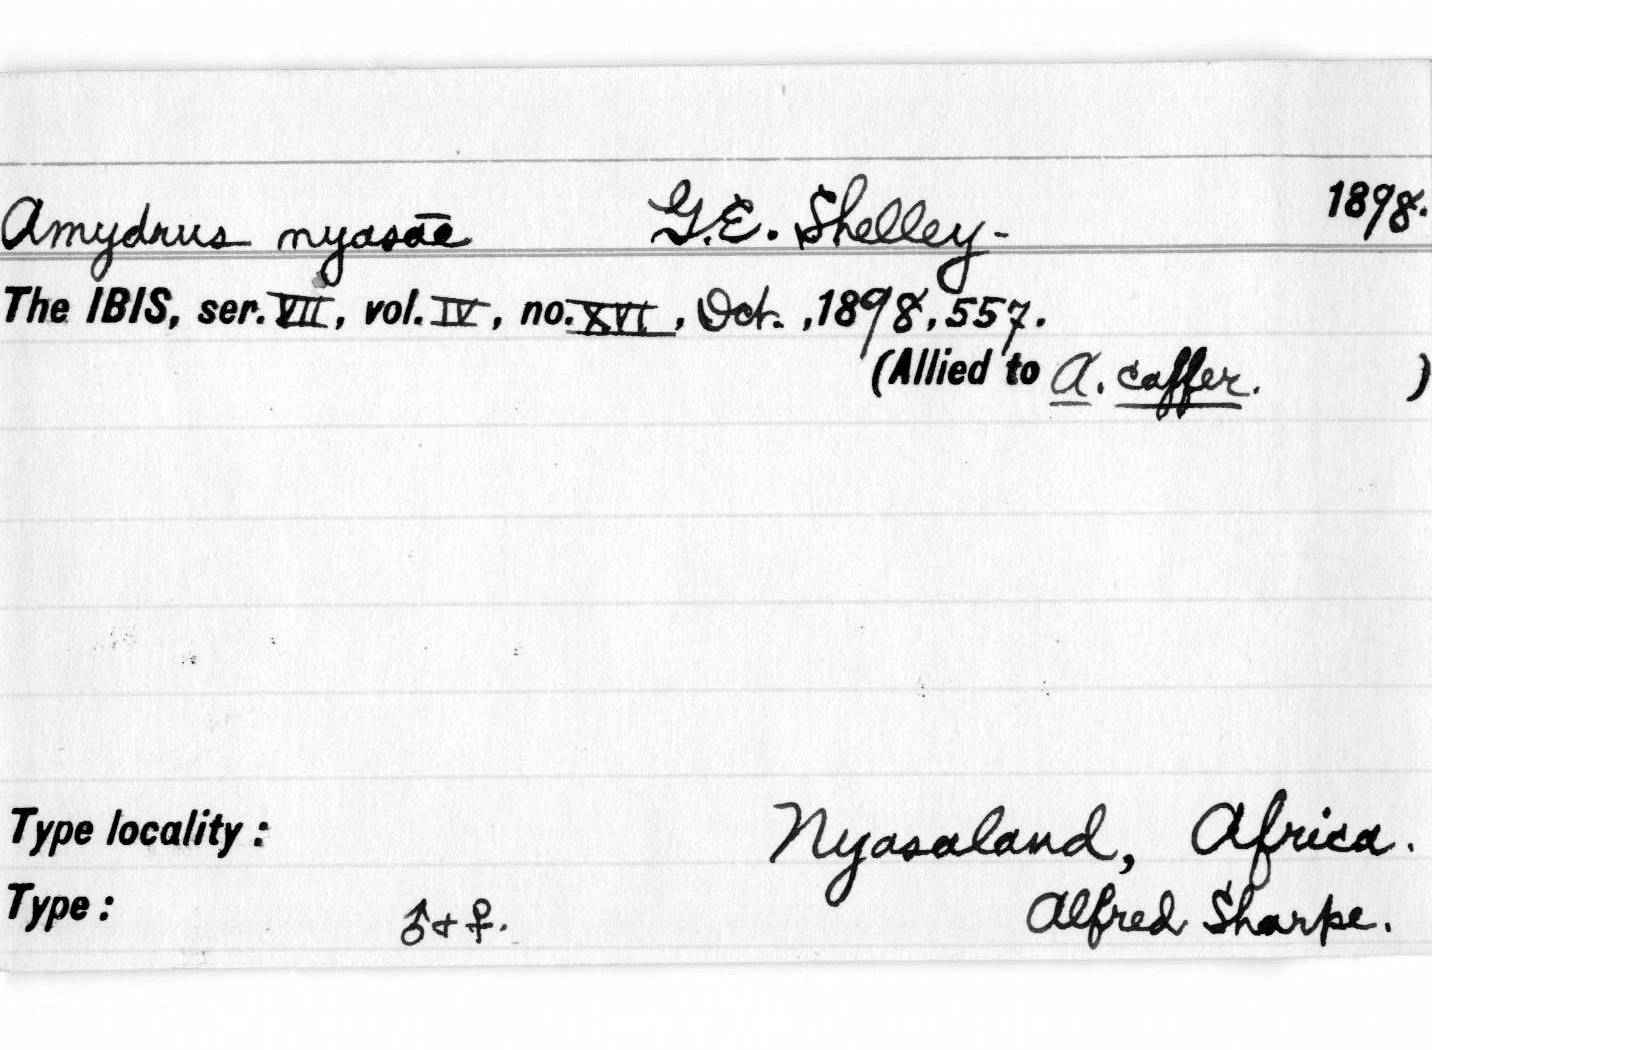 Amydrus nyasae G.E. Shelley- 1898.
The IBIS, ser. VII, vol. IV, no. XVI, Oct. ,1898, 557.
(Allied to A. caffer. )
Type locality: Nyasaland, Africa.
Type: ♂ + ♀. Alfred Sharpe.